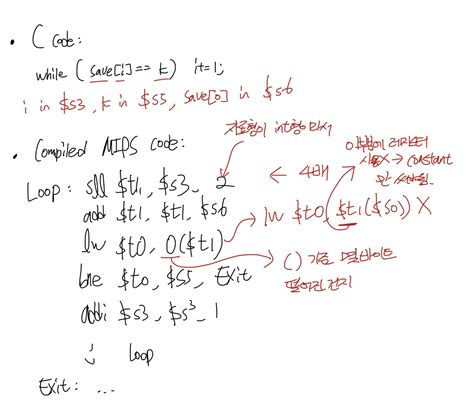 • C code:
while (save[i] == k) i+=1;
i in $s3, k in $s5, save[0] in $s6
자료형이 int형 이라서
• Compiled MIPS code:
이부분이 레지스터
사용X → constant
만 사용됨.
Loop: sll $t1, $s3, 2 ← 4배
add $t1, $t1, $s6
lw $t0, $t1($s0)) X
lw $t0, 0($t1)
( ) 기준 몇 바이트
떨어진건지
bne $t0, $s5, Exit
addi $s3, $s3, 1
j Loop
Exit: ...